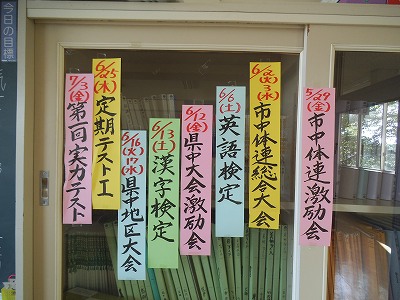 5/29(金)市中体連激励会
6/2(火)3(水)市中体連総合大会
6/6(土)英語検定
6/12(金)県中大会激励会
6/13(土)漢字検定
6/16(火)17(水)県中地区大会
6/25(木)定期テストⅠ
7/3(金)第一回実力テスト
今日の目標